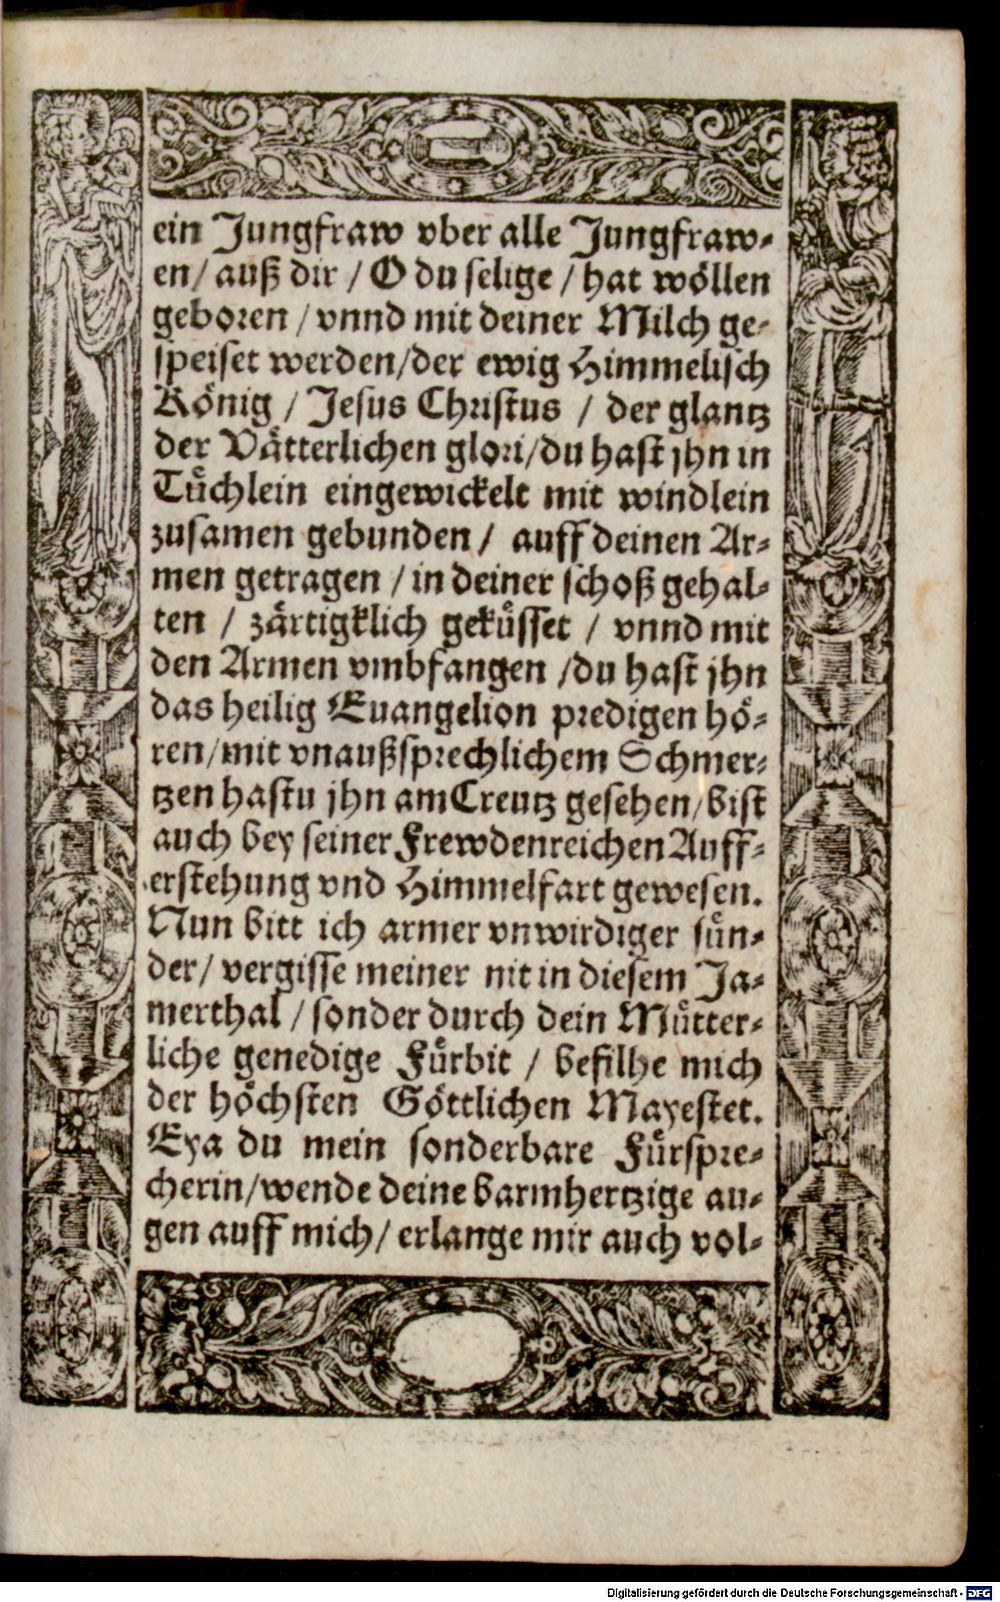 ein Jungfraw vber alle Jungfraw⸗
en/ auß dir / O du selige / hat wöllen
geboren / vnnd mit deiner Milch ge⸗
speiset werden/der ewig Himmelisch
König / Jesus Christus / der glantz
der Vätterlichen glori/du hast jhn in
Tüchlein eingewickelt mit windlein
zusamen gebunden / auff deinen Ar⸗
men getragen / in deiner schoß gehal⸗
ten / zärtigklich geküsset / vnnd mit
den Armen vmbfangen /du hast jhn
das heilig Euangelion predigen hö⸗
ren/mit vnaußsprechlichem Schmer⸗
tzen hastu jhn am Creutz gesehen/bist
auch bey seiner Frewdenreichen Auff⸗
erstehung vnd Himmelfart gewesen.
Nun bitt ich armer vnwirdiger sün⸗
der/ vergisse meiner nit in diesem Ja⸗
merthal / sonder durch dein Mütter⸗
liche genedige Fürbit / befilhe mich
der höchsten Göttlichen Mayestet.
Eya du mein sonderbare Fürspre⸗
cherin/wende deine barmhertzige au⸗
gen auff mich/ erlange mir auch vol⸗
Digitalisierung gefördert durch die Deutsche Forschungsgemeinschaft - DFG